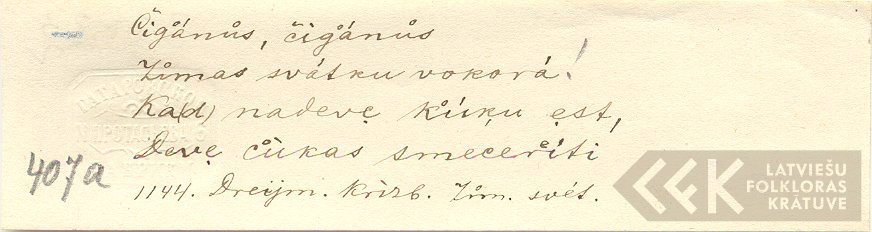 Čigånůs, čigånůs
Zîmas svátku vokorá!
Ka(d) nadevę kůķu ęst,
Devę čůkas smecerîti
407a
1144. Dreijm. Krizb. Zîm. svét.
LATVIEŠU
FOLKLORAS
KRĀTUVE